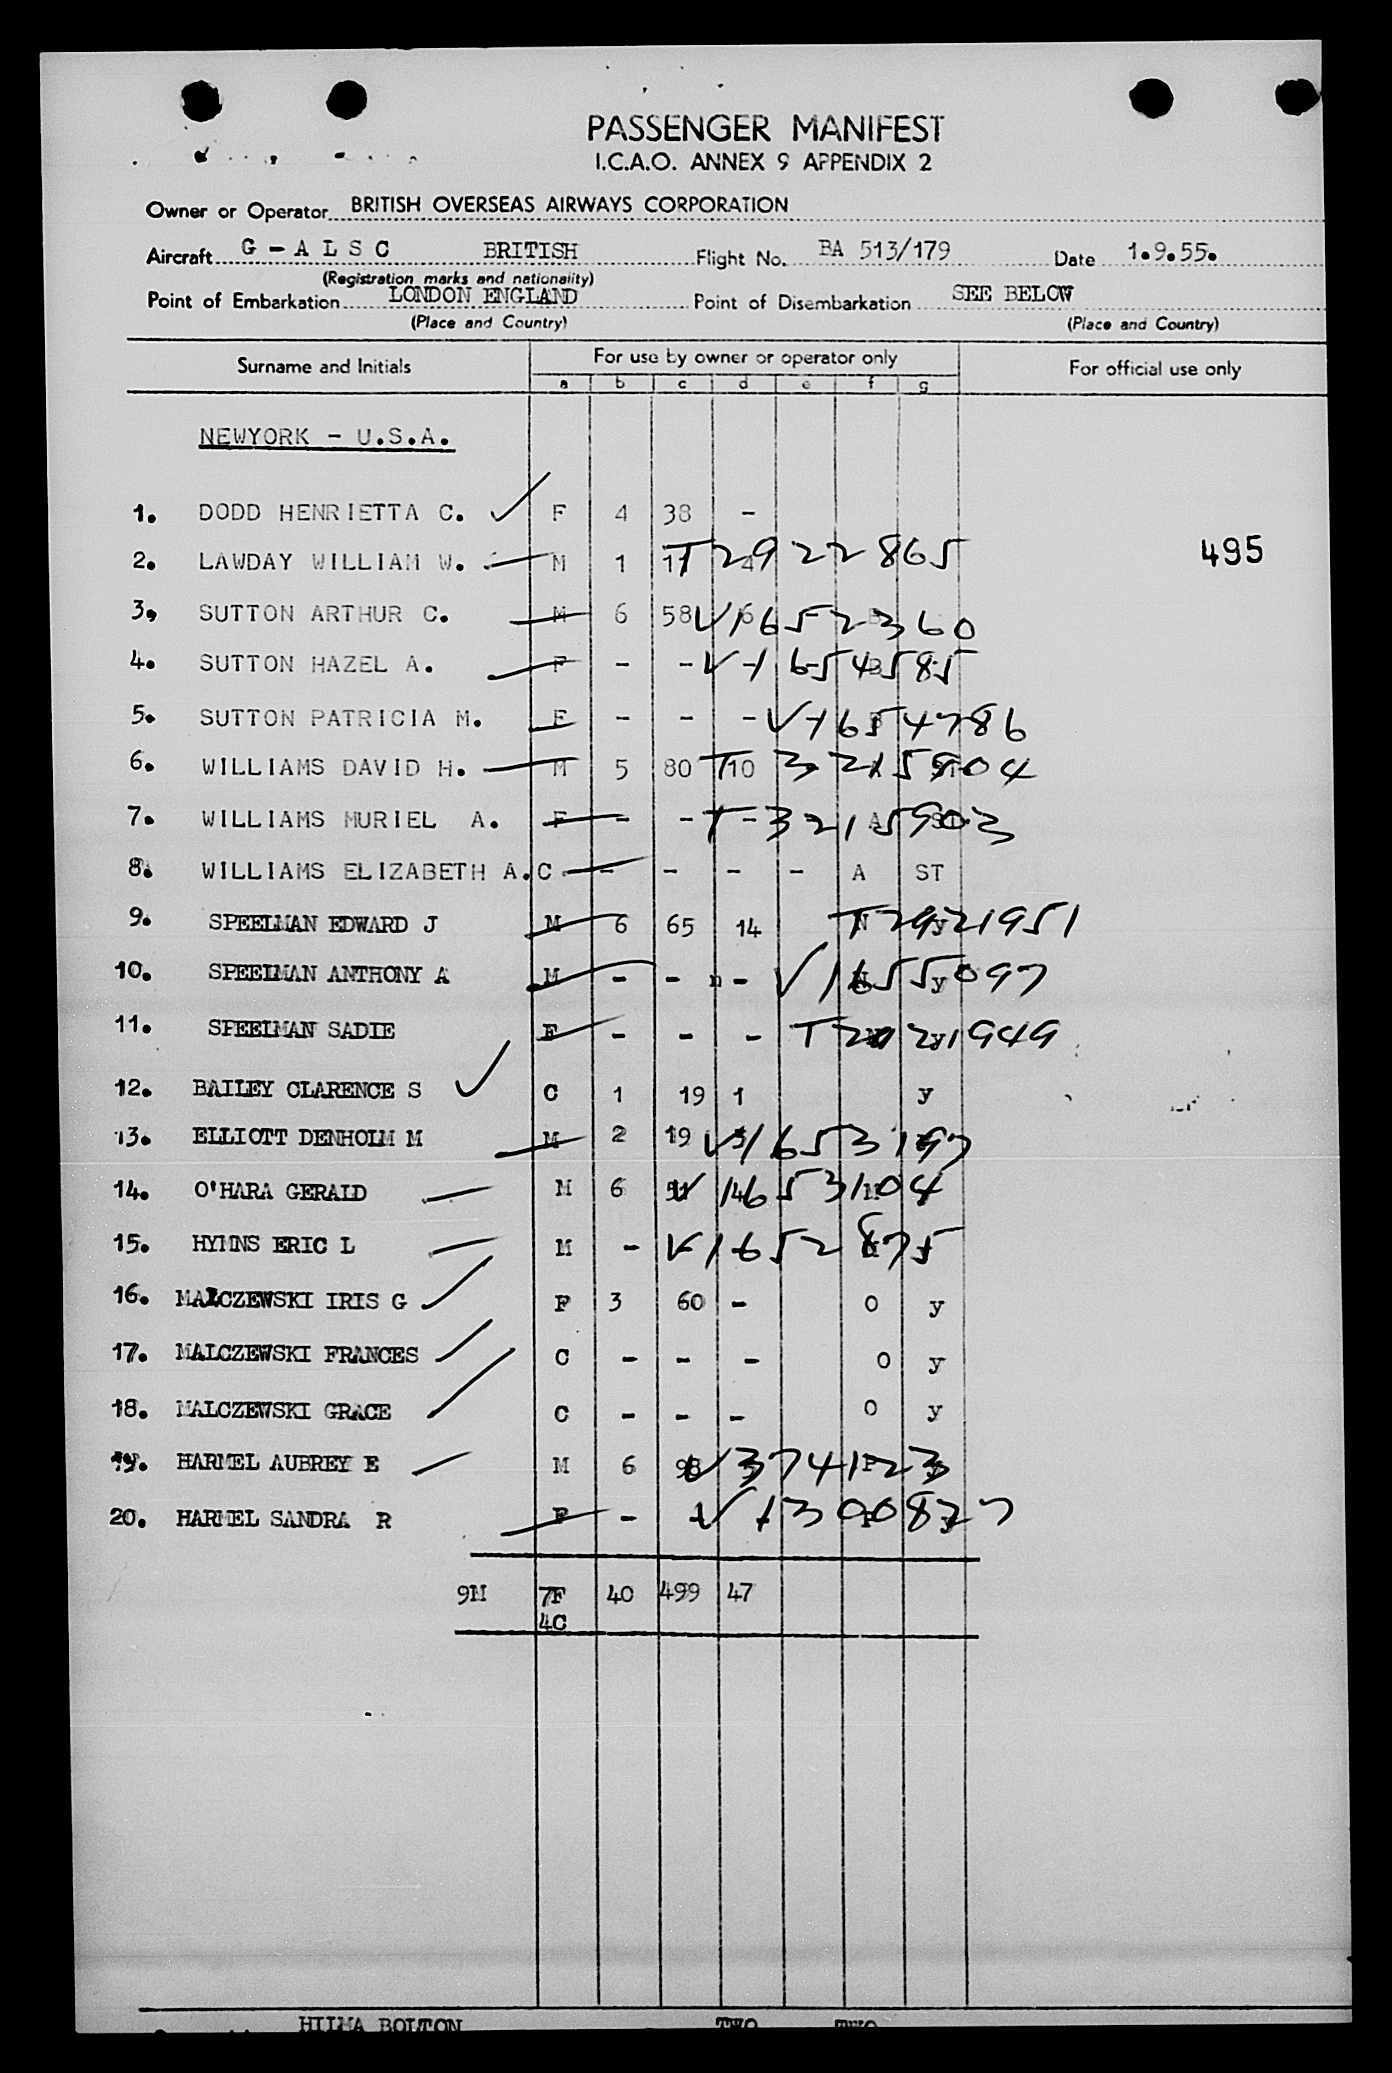 PASSENGER MANIFEST
I.C.A.O. ANNEX 9 APPENDIX 2
Owner or Operator BRITISH OVERSEAS AIRWAYS CORPORATION
Aircraft G - A L S C BRITISH Flight No. BA 513/179 Date 1.9.55.
(Registration marks and nationality)
Point of Embarkation LONDON ENGLAND Point of Disembarkation SEE BELOW
(Place and Country) (Place and Country)
Surname and Initials For use by owner or operator only For official use only
a b c d e f g
NEWYORK - U.S.A.
1. DODD HENRIETTA C. F 4 38 -
2. LAWDAY WILLIAM W. M 1 17 T2922865 495
3. SUTTON ARTHUR C. M 6 58 V1652360
4. SUTTON HAZEL A. F - - V-1654585
5. SUTTON PATRICIA M. F - - - V1654786
6. WILLIAMS DAVID H. M 5 80 10 T3215904
7. WILLIAMS MURIEL A. F - - - T3215903
8. WILLIAMS ELIZABETH A. C - - - - A ST
9. SPEELMAN EDWARD J M 6 65 14 T2921951
10. SPEELMAN ANTHONY A M - - n - V1655097 y
11. SPEELMAN SADIE F - - - T2921949
12. BAILEY CLARENCE S C 1 19 1 y
13. ELLIOTT DENHOLM M M 2 19 V1653197
14. O'HARA GERALD M 6 51 14 V1653104
15. HYMNS ERIC L M - V1652875
16. MALCZEWSKI IRIS G F 3 60 - O y
17. MALCZEWSKI FRANCES C - - - O y
18. MALCZEWSKI GRACE C - - - O y
19. HARMEL AUBREY E M 6 98 V374123
20. HARMEL SANDRA R F - - V1300827
9M 7F 40 499 47
4C
HILMA BOLTON TWO TWO